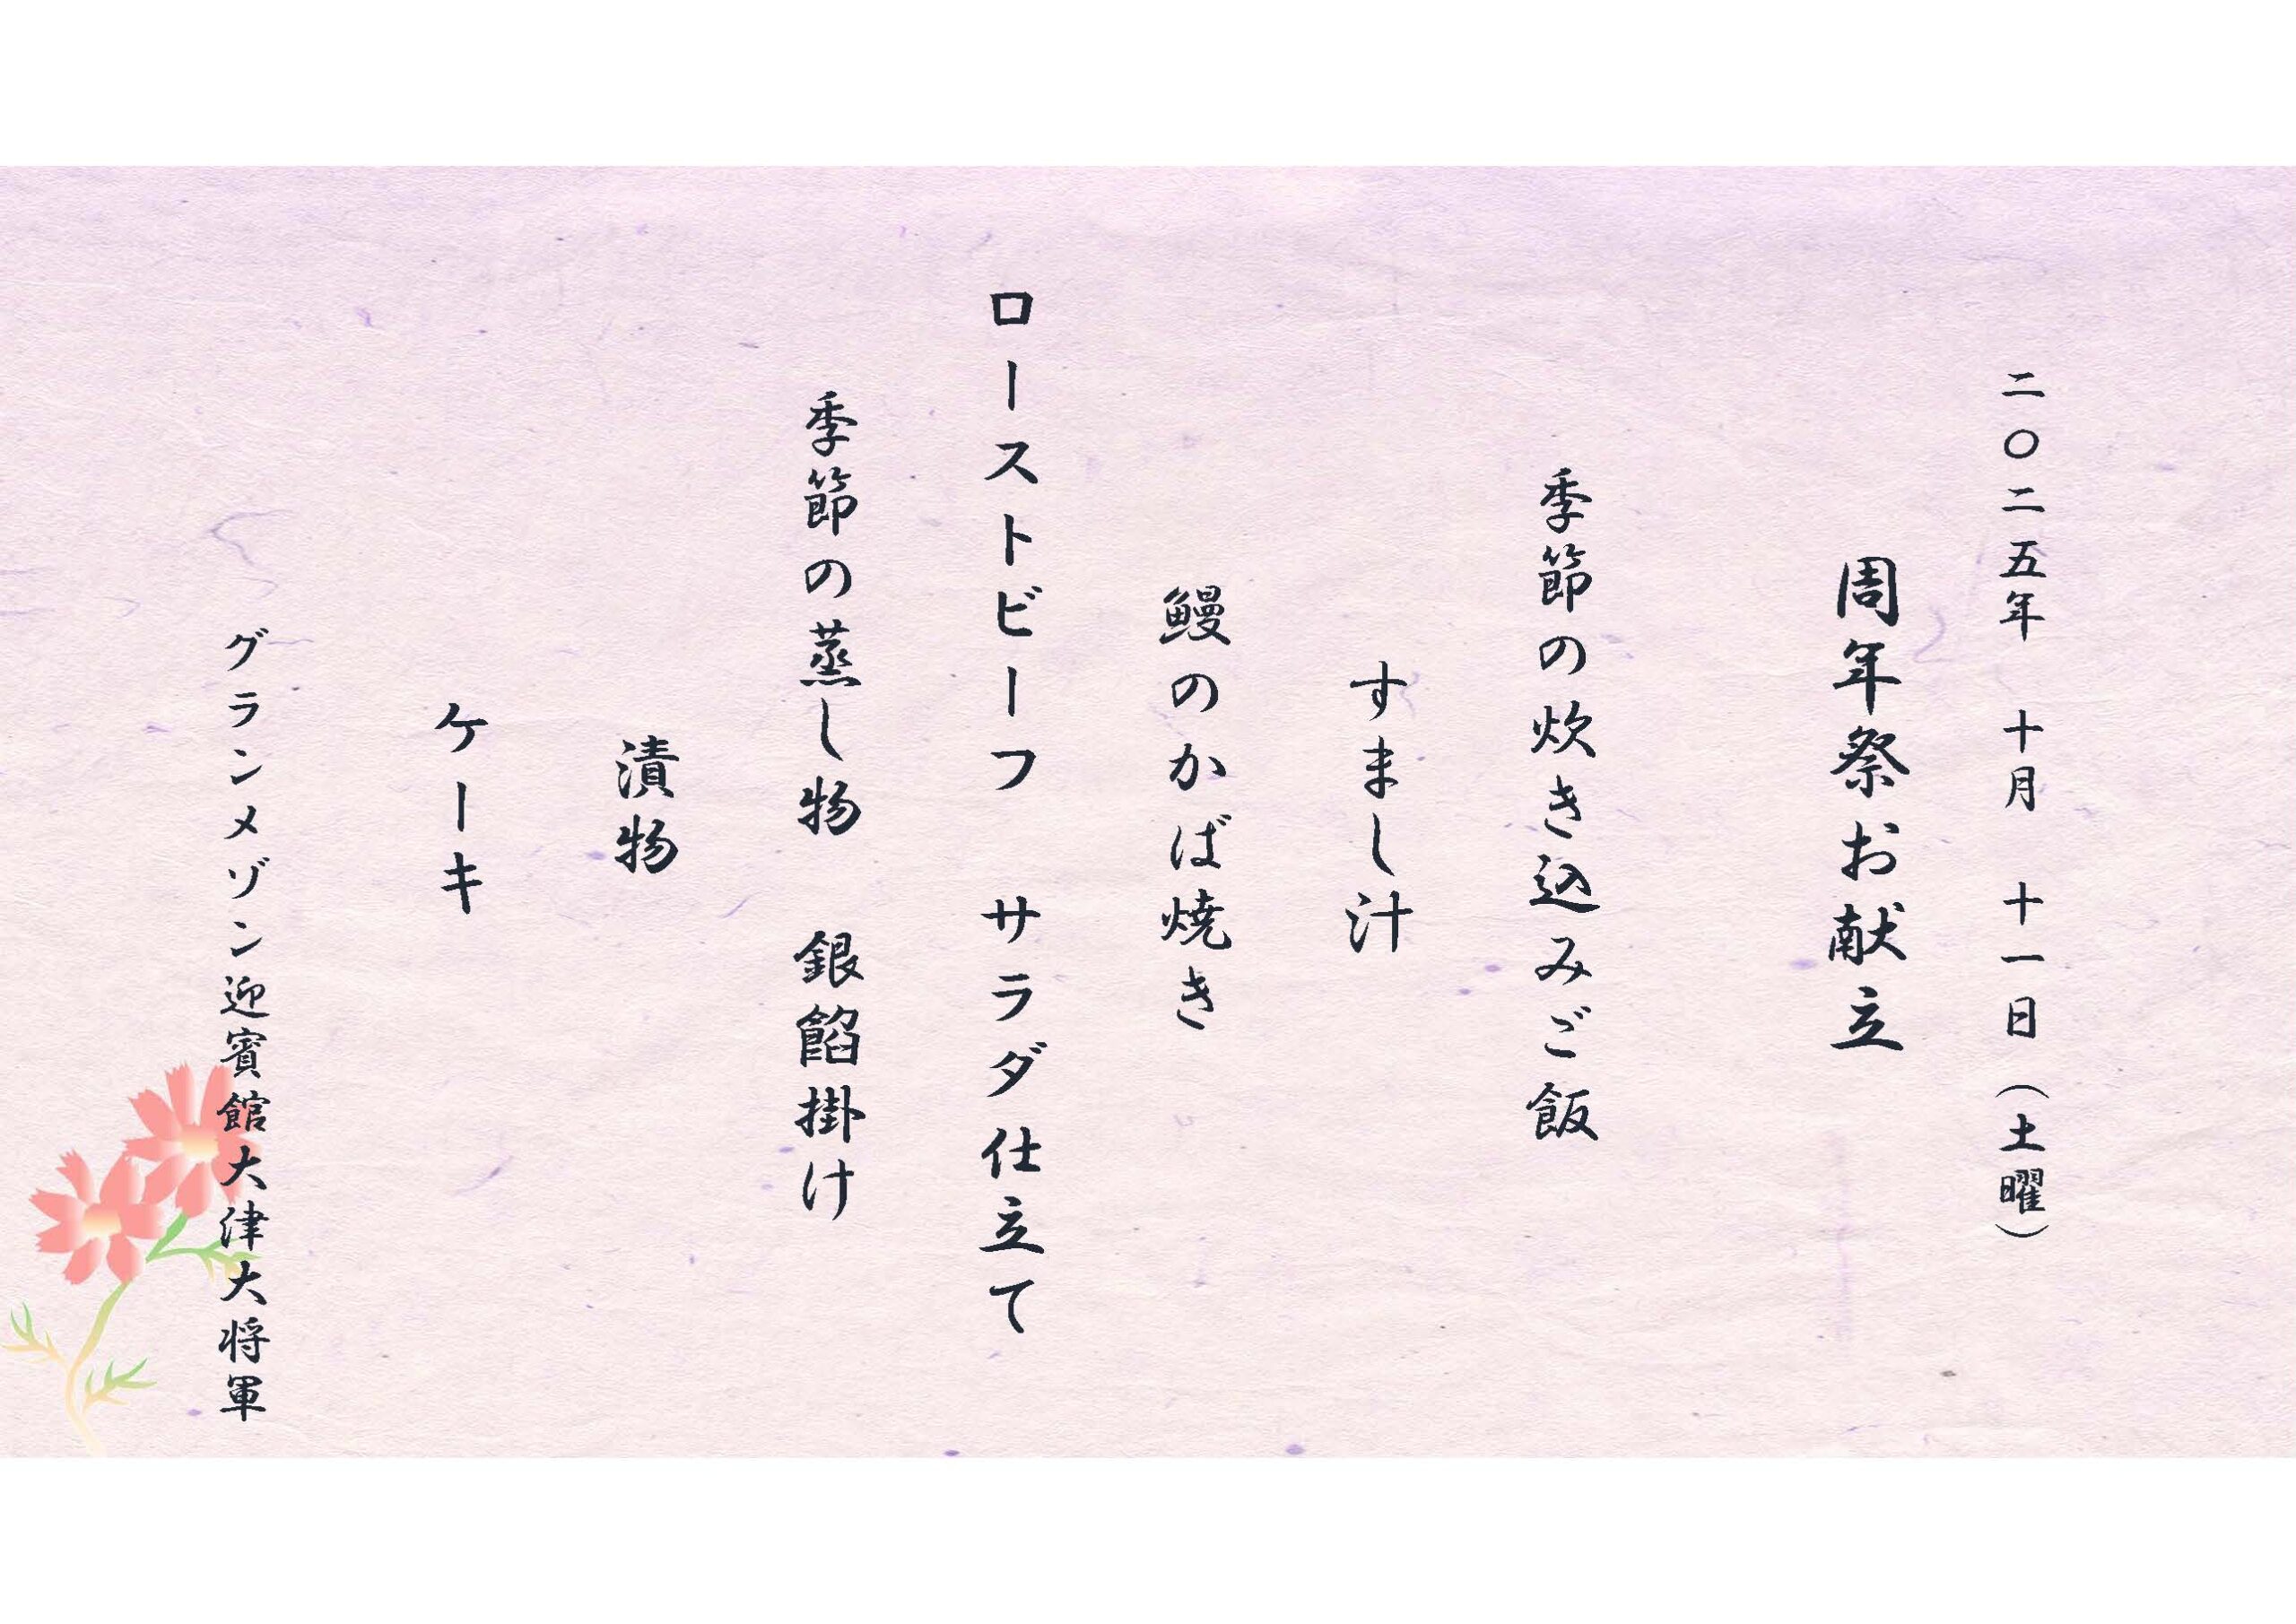 二〇二五年　十月　十一日（土曜）
周年祭お献立
季節の炊き込みご飯
すまし汁
鰻のかば焼き
ローストビーフ　サラダ仕立て
季節の蒸し物　銀餡掛け
漬物
ケーキ
グランメゾン迎賓館大津大将軍